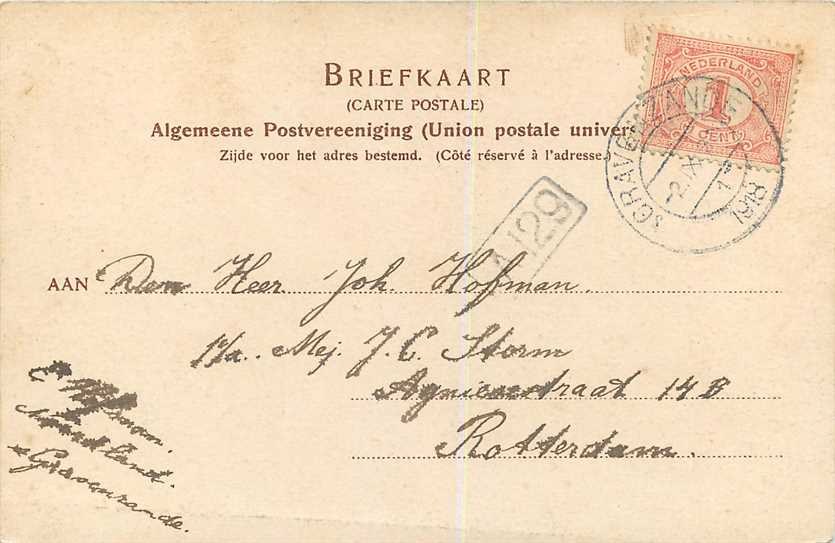 BRIEFKAART
(CARTE POSTALE)
Algemeene Postvereeniging (Union postale univers
Zijde voor het adres bestemd. (Côté réservé à l'adresse.)
NEDERLAND
1
CENT
SGRAVENZANDE
1918
1129
AAN Den Heer Joh. Hofman.
p/a. Mej. J. C. Storm
Agniesestraat 14 B
Rotterdam.
Naaldland.
s Gravenzande.